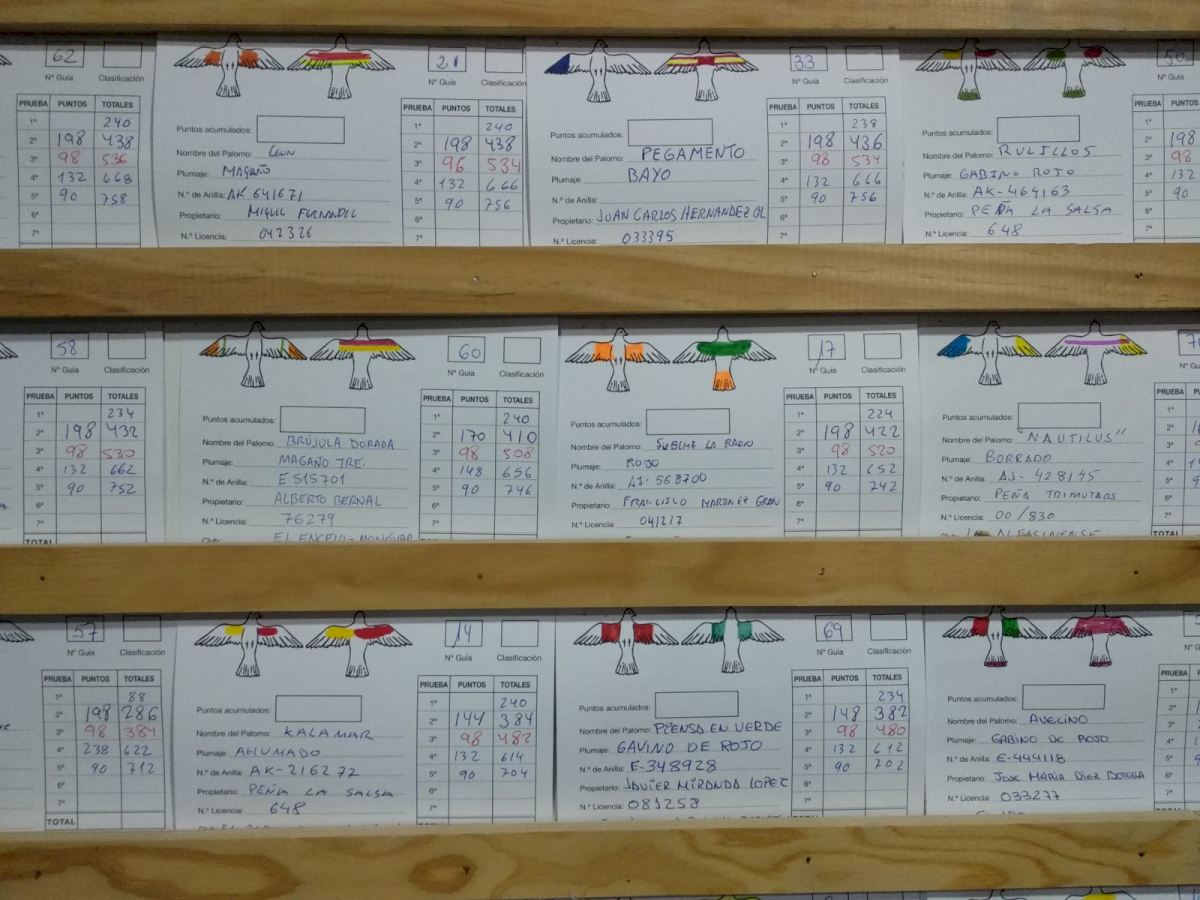 62
Nº Guia Clasificación
PRUEBA PUNTOS TOTALES
1ª 240
2ª 198 438
3ª 98 536
4ª 132 668
5ª 90 758
6ª
7ª
21
Nº Guia Clasificación
Puntos acumulados:
Nombre del Palomo:
Plumaje: MAGAÑO
N.º de Anilla: AK 641671
Propietario: MIGUEL FERNANDEZ
N.º Licencia: 042326
PRUEBA PUNTOS TOTALES
1ª 240
2ª 198 438
3ª 96 534
4ª 132 666
5ª 90 756
6ª
7ª
33
Nº Guia Clasificación
Puntos acumulados:
Nombre del Palomo: PEGAMENTO
Plumaje: BAYO
N.º de Anilla:
Propietario: JUAN CARLOS HERNANDEZ GL
N.º Licencia: 033395
PRUEBA PUNTOS TOTALES
1ª 238
2ª 198 436
3ª 98 534
4ª 132 666
5ª 90 756
6ª
7ª
Nº Guia
Puntos acumulados:
Nombre del Palomo: RULILLOS
Plumaje: GABINO ROJO
N.º de Anilla: AK-464163
Propietario: PEÑA LA SALSA
N.º Licencia: 648
PRUEBA PUNTOS
1ª
2ª 198
3ª 98
4ª 132
5ª 90
6ª
7ª
58
Nº Guia Clasificación
PRUEBA PUNTOS TOTALES
1ª 234
2ª 198 432
3ª 98 530
4ª 132 662
5ª 90 752
6ª
7ª
TOTAL
60
Nº Guia Clasificación
Puntos acumulados:
Nombre del Palomo: BRÚJULA DORADA
Plumaje: MAGAÑO TRE.
N.º de Anilla: E 515701
Propietario: ALBERTO BERNAL
N.º Licencia: 76279
PRUEBA PUNTOS TOTALES
1ª 240
2ª 170 410
3ª 98 508
4ª 148 656
5ª 90 746
6ª
7ª
17
Nº Guia Clasificación
Puntos acumulados:
Nombre del Palomo: SUBEME LA RADIO
Plumaje: ROJO
N.º de Anilla: AJ-568700
Propietario: FRANCISCO MARTINEZ GRAN
N.º Licencia: 041217
PRUEBA PUNTOS TOTALES
1ª 224
2ª 198 422
3ª 98 520
4ª 132 652
5ª 90 742
6ª
7ª
Nº Guia
Puntos acumulados:
Nombre del Palomo: "NAUTILUS"
Plumaje: BORRADO
N.º de Anilla: AJ-428145
Propietario: PEÑA TRIMUTAOS
N.º Licencia: 00/830
PRUEBA
1ª
2ª
3ª
4ª
5ª
6ª
7ª
TOTAL
57
Nº Guia Clasificación
PRUEBA PUNTOS TOTALES
1ª 88
2ª 198 286
3ª 98 384
4ª 238 622
5ª 90 712
6ª
7ª
TOTAL
14
Nº Guia Clasificación
Puntos acumulados:
Nombre del Palomo: KALAMAR
Plumaje: AHUMADO
N.º de Anilla: AK-216272
Propietario: PEÑA LA SALSA
N.º Licencia: 648
PRUEBA PUNTOS TOTALES
1ª 240
2ª 144 384
3ª 98 482
4ª 132 614
5ª 90 704
6ª
7ª
TOTAL
69
Nº Guia Clasificación
Puntos acumulados:
Nombre del Palomo: PIENSA EN VERDE
Plumaje: GAVINO DE ROJO
N.º de Anilla: E-348928
Propietario: JAVIER MIRANDA LOPEZ
N.º Licencia: 081258
PRUEBA PUNTOS TOTALES
1ª 234
2ª 148 382
3ª 98 480
4ª 132 612
5ª 90 702
6ª
7ª
TOTAL
Nº Guia
Puntos acumulados:
Nombre del Palomo: AVECINO
Plumaje: GABINO DE ROJO
N.º de Anilla: E-444118
Propietario: JOSE MARIA DIEZ BOTELLA
N.º Licencia: 033277
PRUEBA
1ª
2ª
3ª
4ª
5ª
6ª
7ª
TOTAL